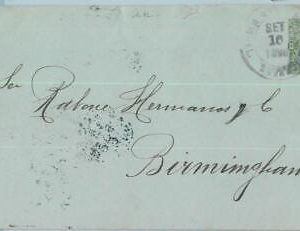 SET
10
Sor Rabone Hermanos y C
Birmingham